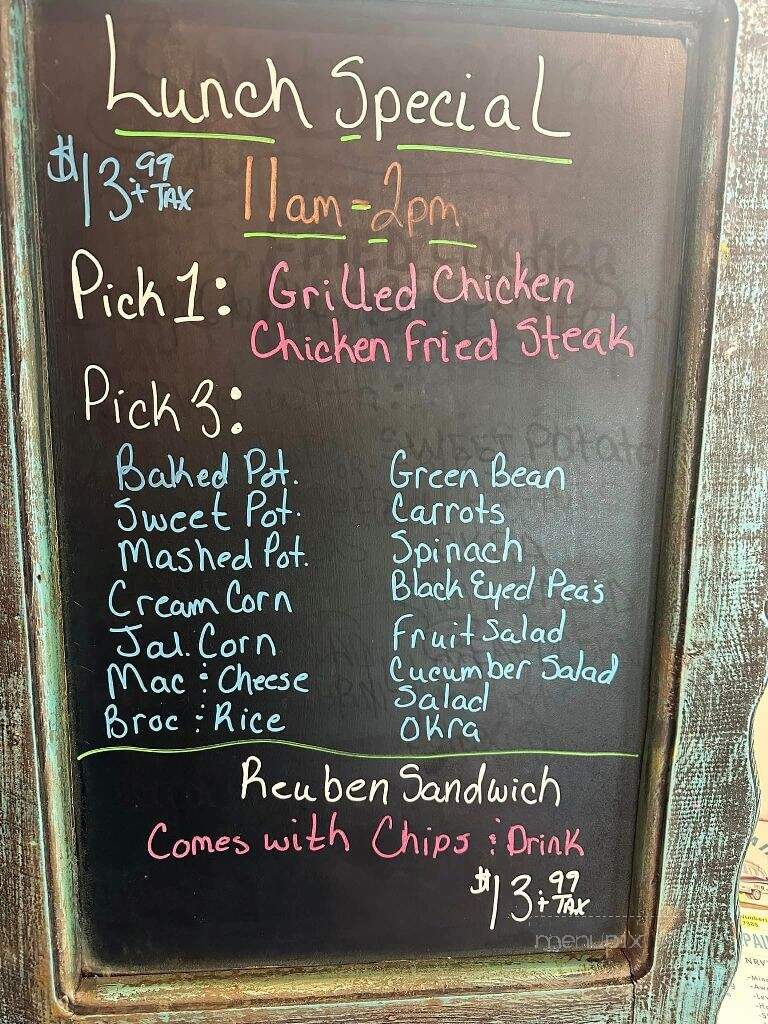 Lunch Special
$13.99 + TAX 11am-2pm
Pick 1: Grilled Chicken
Chicken Fried Steak
Pick 3:
Baked Pot.
Sweet Pot.
Mashed Pot.
Cream Corn
Jal. Corn
Mac & Cheese
Broc & Rice
Green Bean
Carrots
Spinach
Black Eyed Pea's
Fruit Salad
Cucumber Salad
Salad
Okra
Reuben Sandwich
Comes with Chips & Drink
$13.99 + TAX
menupix